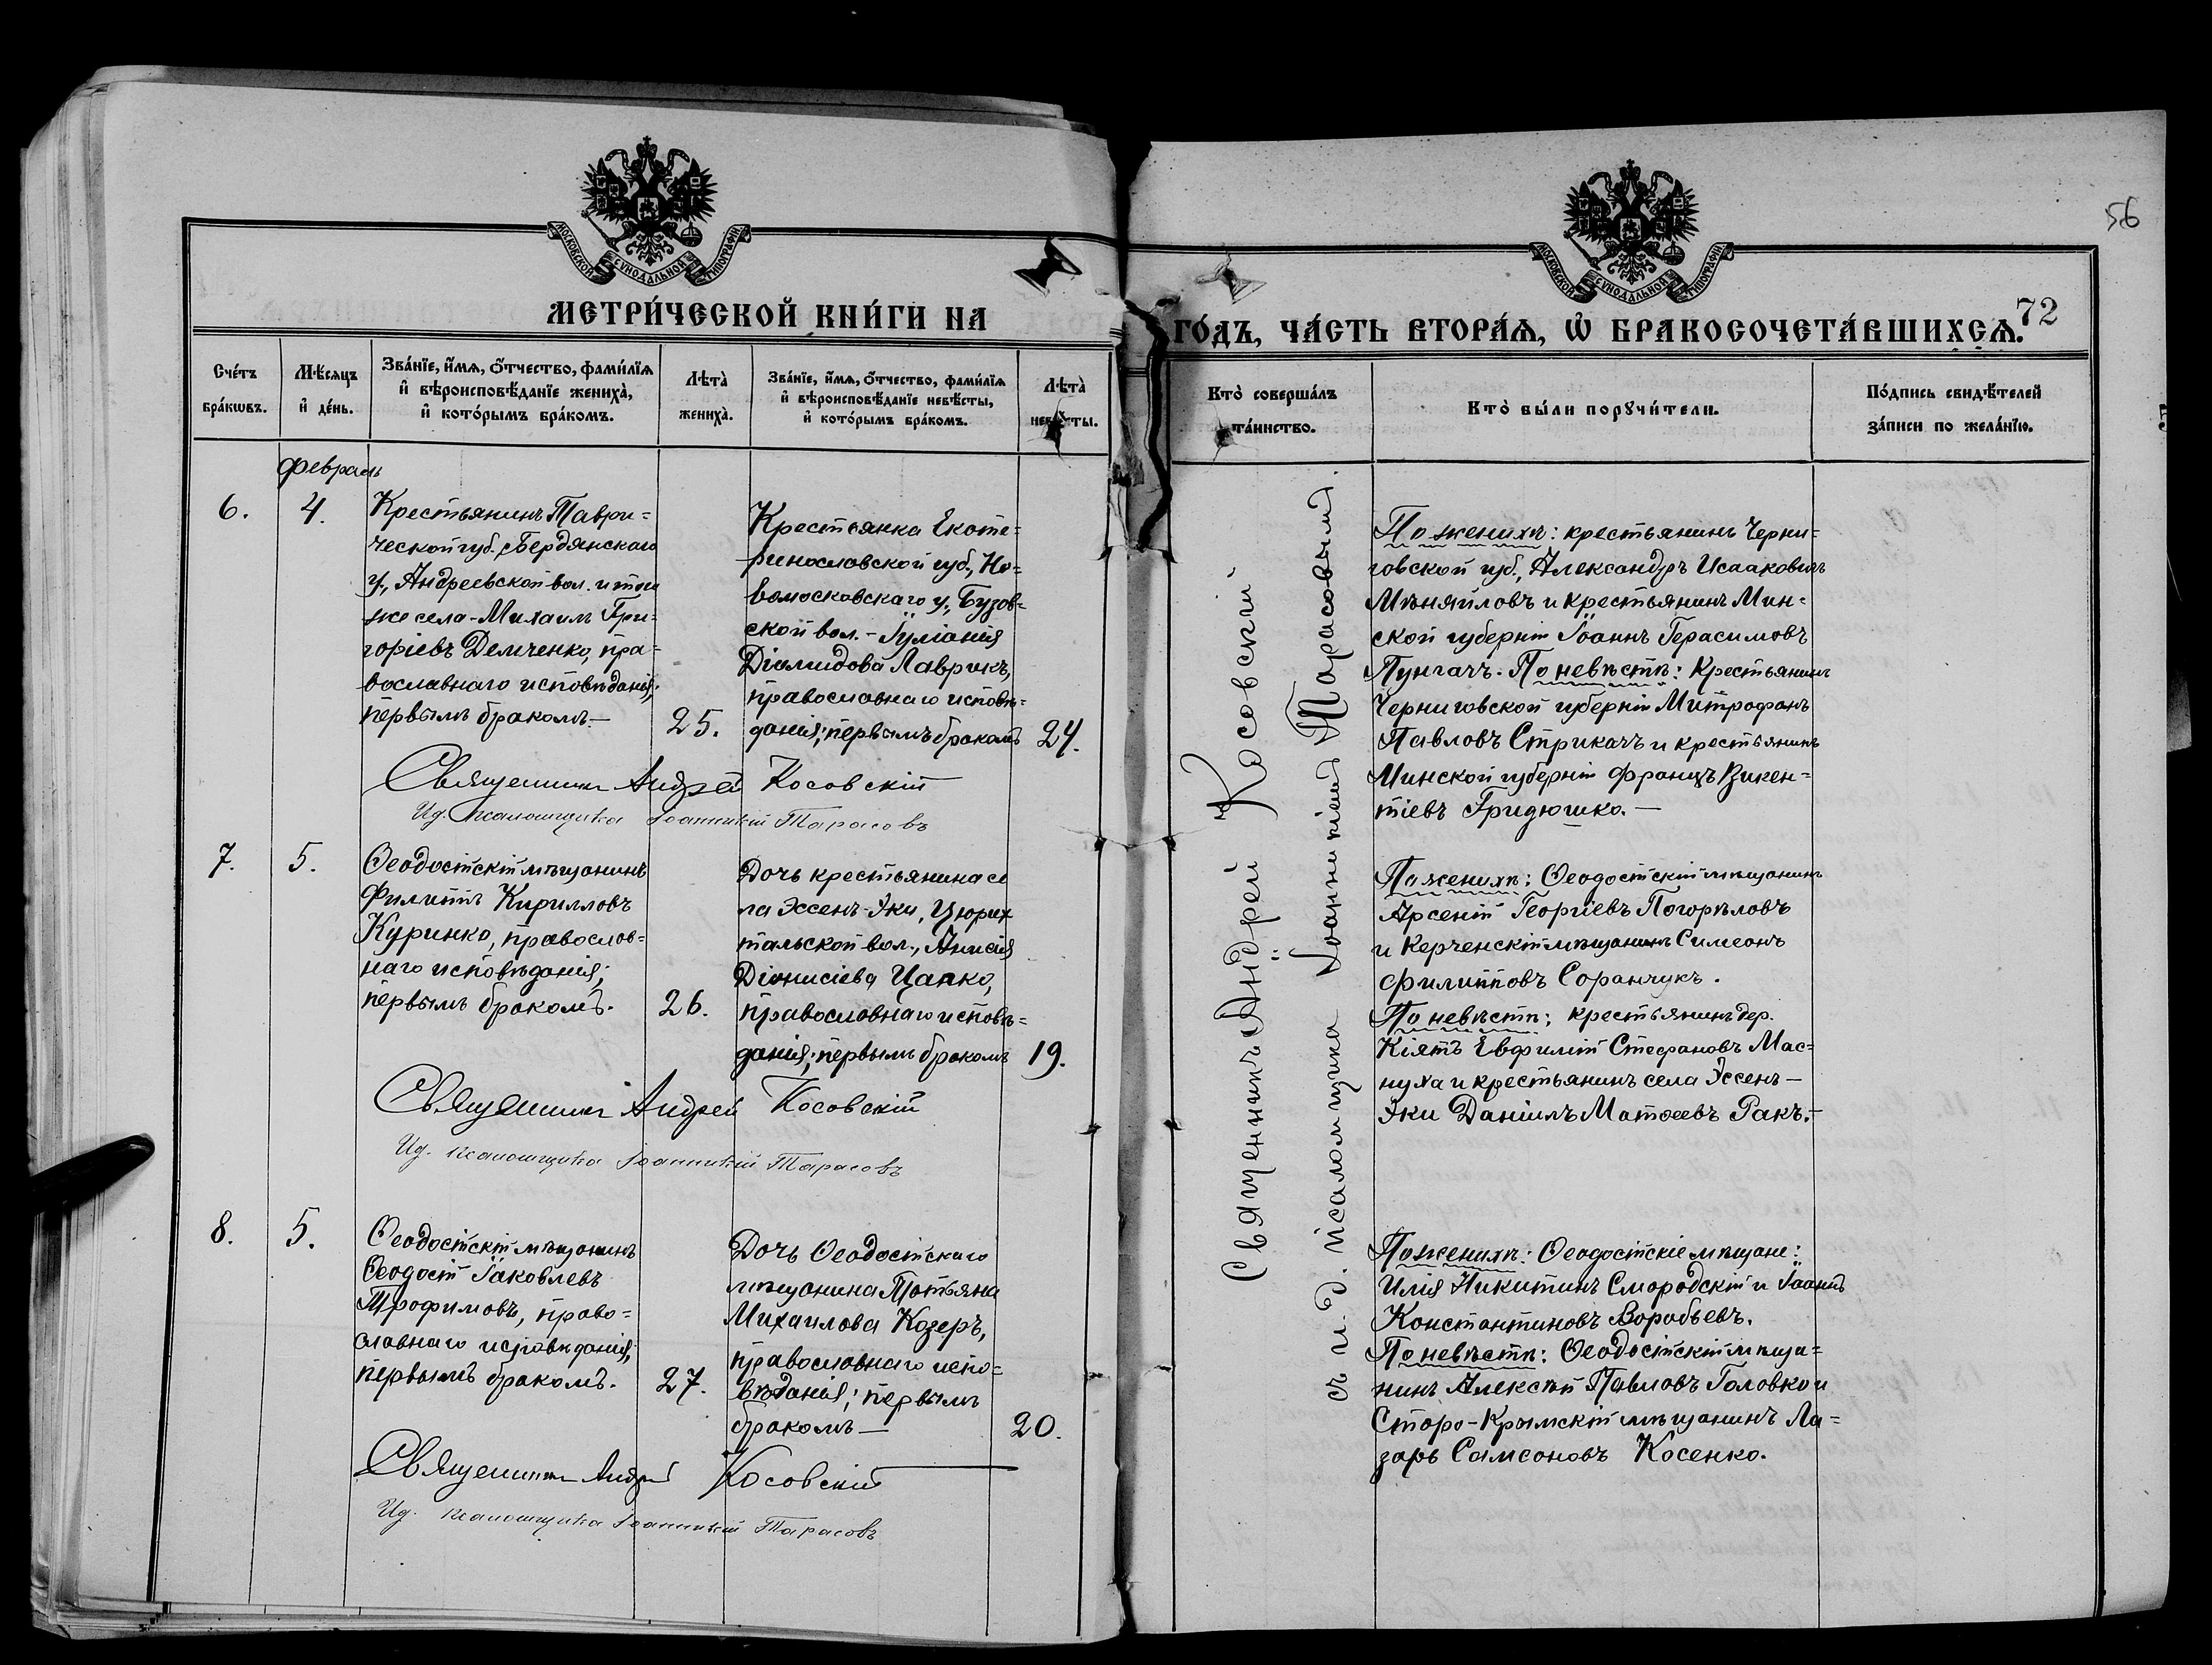 МОСКОВСКОЙ СѴНОДАЛЬНОЙ ТИПОГРАФІИ
МЕТРИ́ЧЕСКОЙ КНИ́ГИ НА
Сче́тъ бра́кѡвъ.
Мѣ́сяцъ и҆ де́нь.
Зва́нїе, и҆́мѧ, ѻ҆́тчество, фами́лїѧ и҆ вѣроисповѣ́данїе жениха̀, и҆ кото́рымъ бра́комъ.
Лѣта̀ жениха̀.
Зва́нїе, и҆́мѧ, ѻ҆́тчество, фами́лїѧ и҆ вѣроисповѣ́данїе невѣ́сты, и҆ кото́рымъ бра́комъ.
Лѣта̀ невѣ́сты.
февраль
6.
4.
Крестьянинъ Таври=
ческой губ., Бердянскаго
у., Андреевской вол. и того
же села - Михаилъ Гри=
горіевъ Демченко, пра=
вославнаго исповѣданія;
первымъ бракомъ. —
25.
Крестьянка Екате=
ринославской губ., Но=
вомосковскаго у., Бузов=
ской вол. - Іуліанія
Діомидова Лаврикъ,
православнаго исповѣ=
данія; первымъ бракомъ
24.
Священникъ Андрей Косовскій
И.д. псаломщика Іоанникій Тарасовъ
7.
5.
Ѳеодосійскій мѣщанинъ
Филиппъ Кирилловъ
Куринко, православ=
наго исповѣданія;
первымъ бракомъ.
26.
Дочь крестьянина се
ла Эссенъ-Эки, Цюрих
тальской вол., Анисія
Діонисіева Цапко,
православнаго исповѣ=
данія; первымъ бракомъ
19.
Священникъ Андрей Косовскій
И.д. псаломщика Іоанникій Тарасовъ
8.
5.
Ѳеодосійскій мѣщанинъ
Ѳеодосій Іаковлевъ
Трофимовъ, право=
славнаго исповѣданія;
первымъ бракомъ.
27.
Дочь Ѳеодосійскаго
мѣщанина Татьяна
Михаилова Козеръ,
православнаго испо=
вѣданія; первымъ
бракомъ —
20.
Священникъ Андрей Косовскій
И.д. псаломщика Іоанникій Тарасовъ
56
МОСКОВСКОЙ СѴНОДАЛЬНОЙ ТИПОГРАФІИ
72
ГО́ДЪ, ЧА́СТЬ ВТОРА́Ѧ, Ѽ БРАКОСОЧЕТА́ВШИХСѦ.
Кто̀ соверша́лъ та́инство.
Кто̀ бы́ли порꙋчи́тели.
По́дпись свидѣ́телей за́писи по жела́нїю.
Священникъ Андрей Косовскій
съ и.д. псаломщика Іоанникіемъ Тарасовымъ.
По женихѣ: крестьянинъ Черни=
говской губ., Александръ Исааковичъ
Мѣняйловъ и крестьянинъ Мин=
ской губерніи Іоаннъ Герасимовъ
Пунгачъ. По невѣстѣ: Крестьянинъ
Черниговской губерніи Митрофанъ
Павловъ Стрикачъ и крестьянинъ
Минской губерніи Францъ Викен=
тіевъ Гридюшко. —
По женихѣ: Ѳеодосійскій мѣщанинъ
Арсеній Георгіевъ Погорѣловъ
и Керченскій мѣщанинъ Симеонъ
Филипповъ Соранчукъ.
По невѣстѣ: крестьянинъ дер.
Кіятъ Евфимій Стефановъ Мас=
нуха и крестьянинъ села Эссенъ —
Эки Даніилъ Матѳеевъ Ракъ. —
По женихѣ: Ѳеодосійскіе мѣщане:
Илія Никитинъ Смородскій и Іоаннъ
Константиновъ Воробьевъ.
По невѣстѣ: Ѳеодосійскій мѣща=
нинъ Алексѣй Павловъ Головко и
Старо-Крымскій мѣщанинъ Ла=
зарь Самсоновъ Косенко.